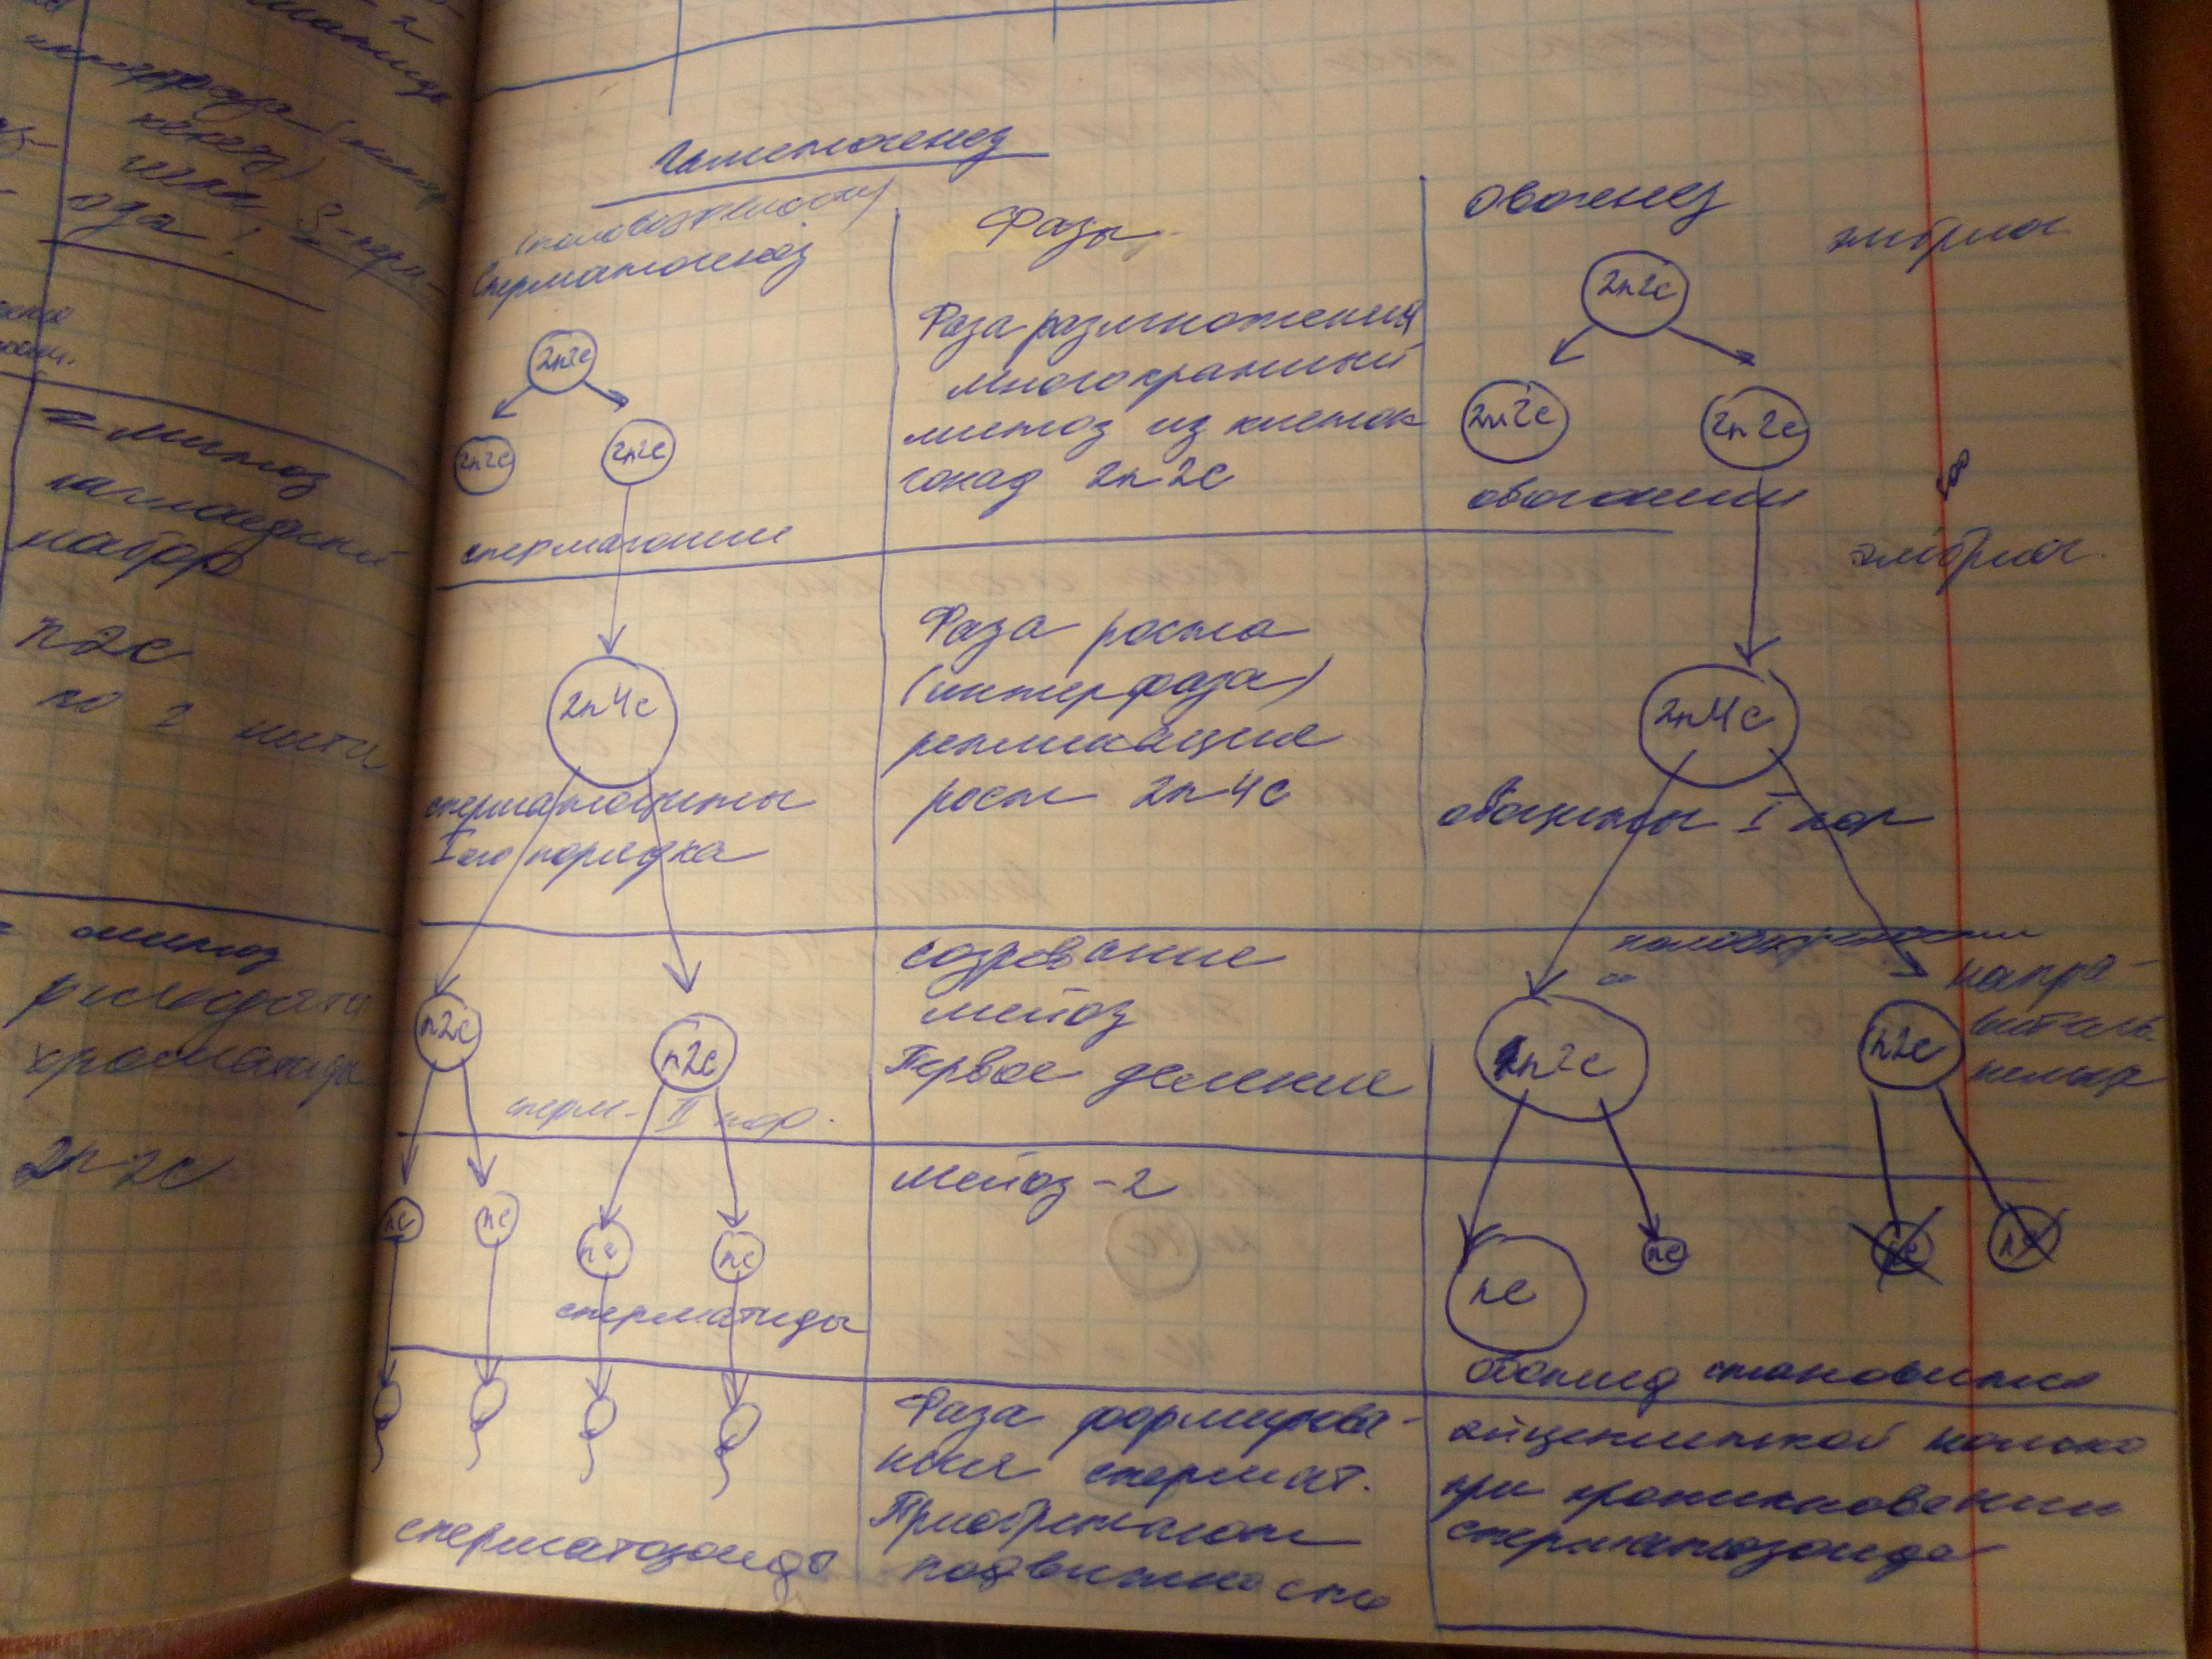 Гаметогенез
(половозрелости)
Сперматогенез
2n2c
2n2c
2n2c
спермагонии
2n4c
сперматоциты
I ого порядка
n2c
n2c
сперм- II пор.
nc
nc
nc
nc
сперматиды
сперматозоиды
Фазы
Фаза размножения
многократный
митоз из клеток
гонад 2n2c
Фаза роста
(интерфаза)
репликация
рост 2n4c
созревание
мейоз
Первое деление
мейоз-2
Фаза формирова-
ния спермат.
Приобретают
подвижность
Овогенез
эмбриог
2n2c
2n2c
2n2c
овогонии
эмбриог.
2n4c
овоциты I пор
половозрелости
напра-
витель
n2c
n2c
nc
nc
nc
nc
овотид становится
яйцеклеткой только
при проникновении
сперматозоида
митоз
набор
n2c
по 2 нити
митоз
расходятся
хроматиды
2n2c